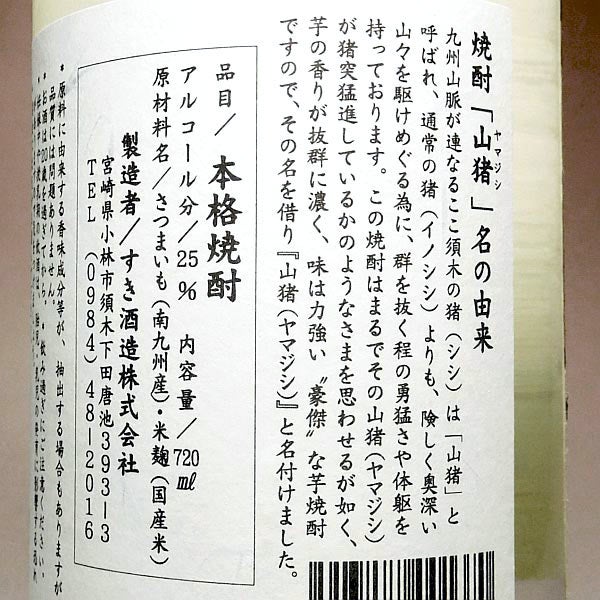 焼酎「山猪」名の由来
ヤマジシ
九州山脈が連なるここ須木の猪(シシ)は「山猪」と
呼ばれ、通常の猪(イノシシ)よりも、険しく奥深い
山々を駆けめぐる為に、群を抜く程の勇猛さや体躯を
持っております。この焼酎はまるでその山猪(ヤマジシ)
が猪突猛進しているかのようなさまを思わせるが如く、
芋の香りが抜群に濃く、味は力強い〝豪傑〟な芋焼酎
ですので、その名を借り『山猪(ヤマジシ)』と名付けました。
品目/本格焼酎
アルコール分/25% 内容量/720㎖
原材料名/さつまいも(南九州産)・米麹(国産米)
製造者/すき酒造株式会社
宮崎県小林市須木下田唐池393-3
TEL(0984)48-2016
*原料に由来する香味成分等が、抽出する場合もありますが
品質には問題ありません。
*お酒は20歳を過ぎてから。・飲み過ぎにご注意ください。